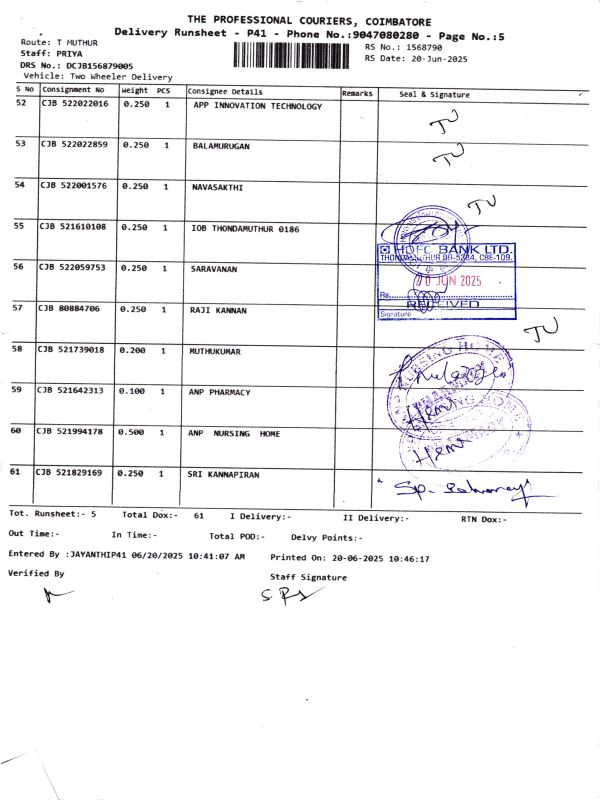 THE PROFESSIONAL COURIERS, COIMBATORE
Delivery Runsheet - P41 - Phone No.:9047080280 - Page No.:5
Route: T MUTHUR RS No.: 1568790
Staff: PRIYA RS Date: 20-Jun-2025
DRS No.: DCJB156879005
Vehicle: Two Wheeler Delivery
S No Consignment No Weight PCS Consignee Details Remarks Seal & Signature
52 CJB 522022016 0.250 1 APP INNOVATION TECHNOLOGY
53 CJB 522022859 0.250 1 BALAMURUGAN
54 CJB 522001576 0.250 1 NAVASAKTHI
55 CJB 521610108 0.250 1 IOB THONDAMUTHUR 0186
HDFC BANK LTD.
56 CJB 522059753 0.250 1 SARAVANAN
JUN 2025
Rs.
RECEIVED
Signature
57 CJB 80884706 0.250 1 RAJI KANNAN
58 CJB 521739018 0.200 1 MUTHUKUMAR
NURSING HOME
59 CJB 521642313 0.100 1 ANP PHARMACY
60 CJB 521994178 0.500 1 ANP NURSING HOME
61 CJB 521829169 0.250 1 SRI KANNAPIRAN
Tot. Runsheet:- 5 Total Dox:- 61 I Delivery:- II Delivery:- RTN Dox:-
Out Time:- In Time:- Total POD:- Delvy Points:-
Entered By :JAYANTHIP41 06/20/2025 10:41:07 AM Printed On: 20-06-2025 10:46:17
Verified By Staff Signature